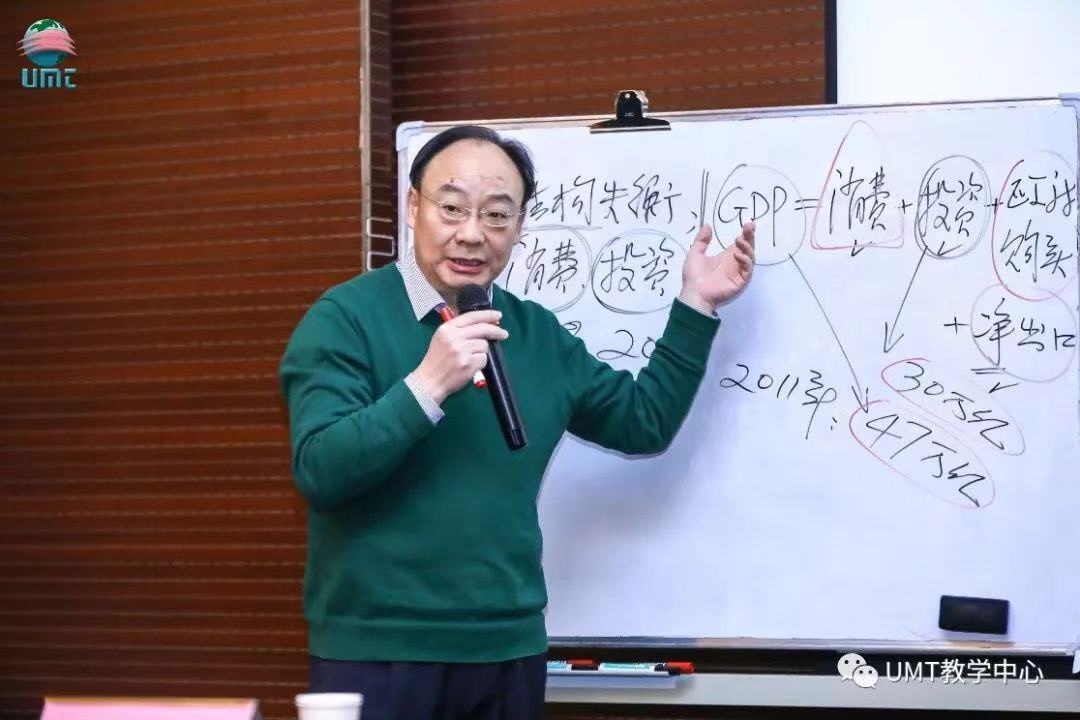 UMT
结构失衡, GDP = 消费 + 投资 + 政府
消费 投资 购买
+ 净出口
20
2011年:
30万亿
47万亿
UMT教学中心